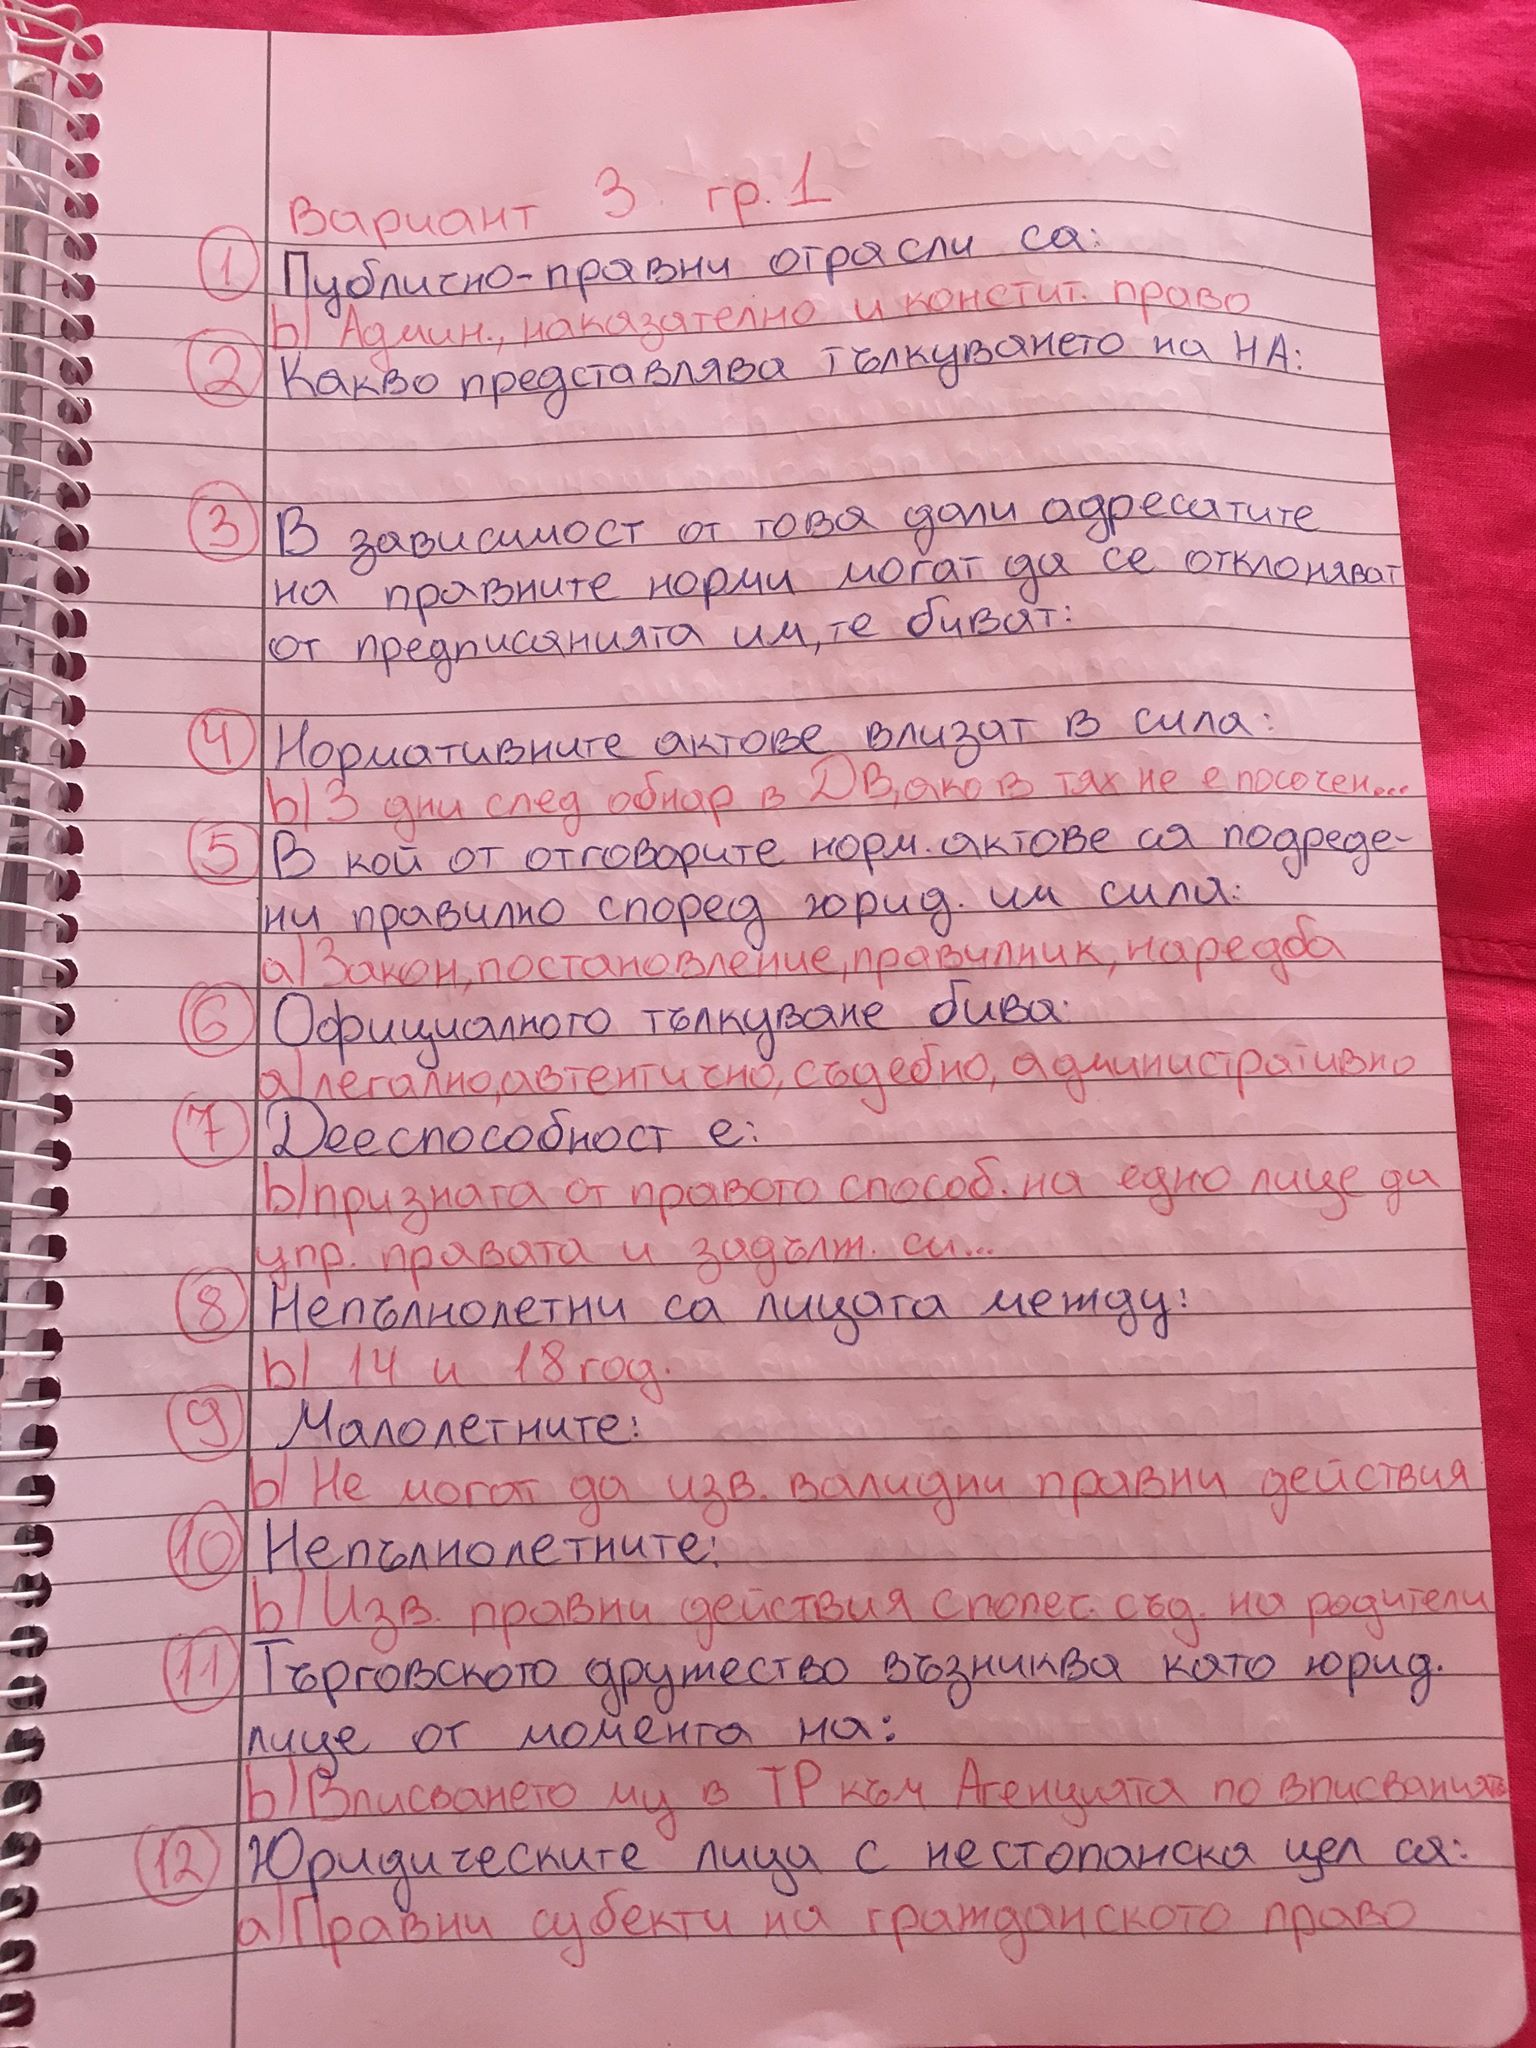 Вариант 3 гр.1
① Публично-правни отрасли са:
b/ Админ., наказателно и констит. право
② Какво представлява тълкуването на НА:
③ В зависимост от това дали адресатите
на правните норми могат да се отклоняват
от предписанията им, те биват:
④ Нормативните актове влизат в сила:
b/ 3 дни след обнар в ДВ, ако в тях не е посочен...
⑤ В кой от отговорите норм. актове са подреде-
ни правилно според юрид. им сила:
a/ Закон, постановление, правилник, наредба
⑥ Официалното тълкуване бива:
a/ легално, автентично, съдебно, административно
⑦ Дееспособност е:
b/ призната от правото способ. на едно лице да
упр. правата и задълж. си...
⑧ Непълнолетни са лицата между:
b/ 14 и 18 год.
⑨ Малолетните:
b/ Не могат да изв. валидни правни действия
⑩ Непълнолетните:
b/ Изв. правни действия с попеч. съд. на родители
⑪ Търговското дружество възниква като юрид.
лице от момента на:
b/ Вписването му в ТР към Агенцията по вписванията
⑫ Юридическите лица с нестопанска цел са:
a/ Правни субекти на гражданското право